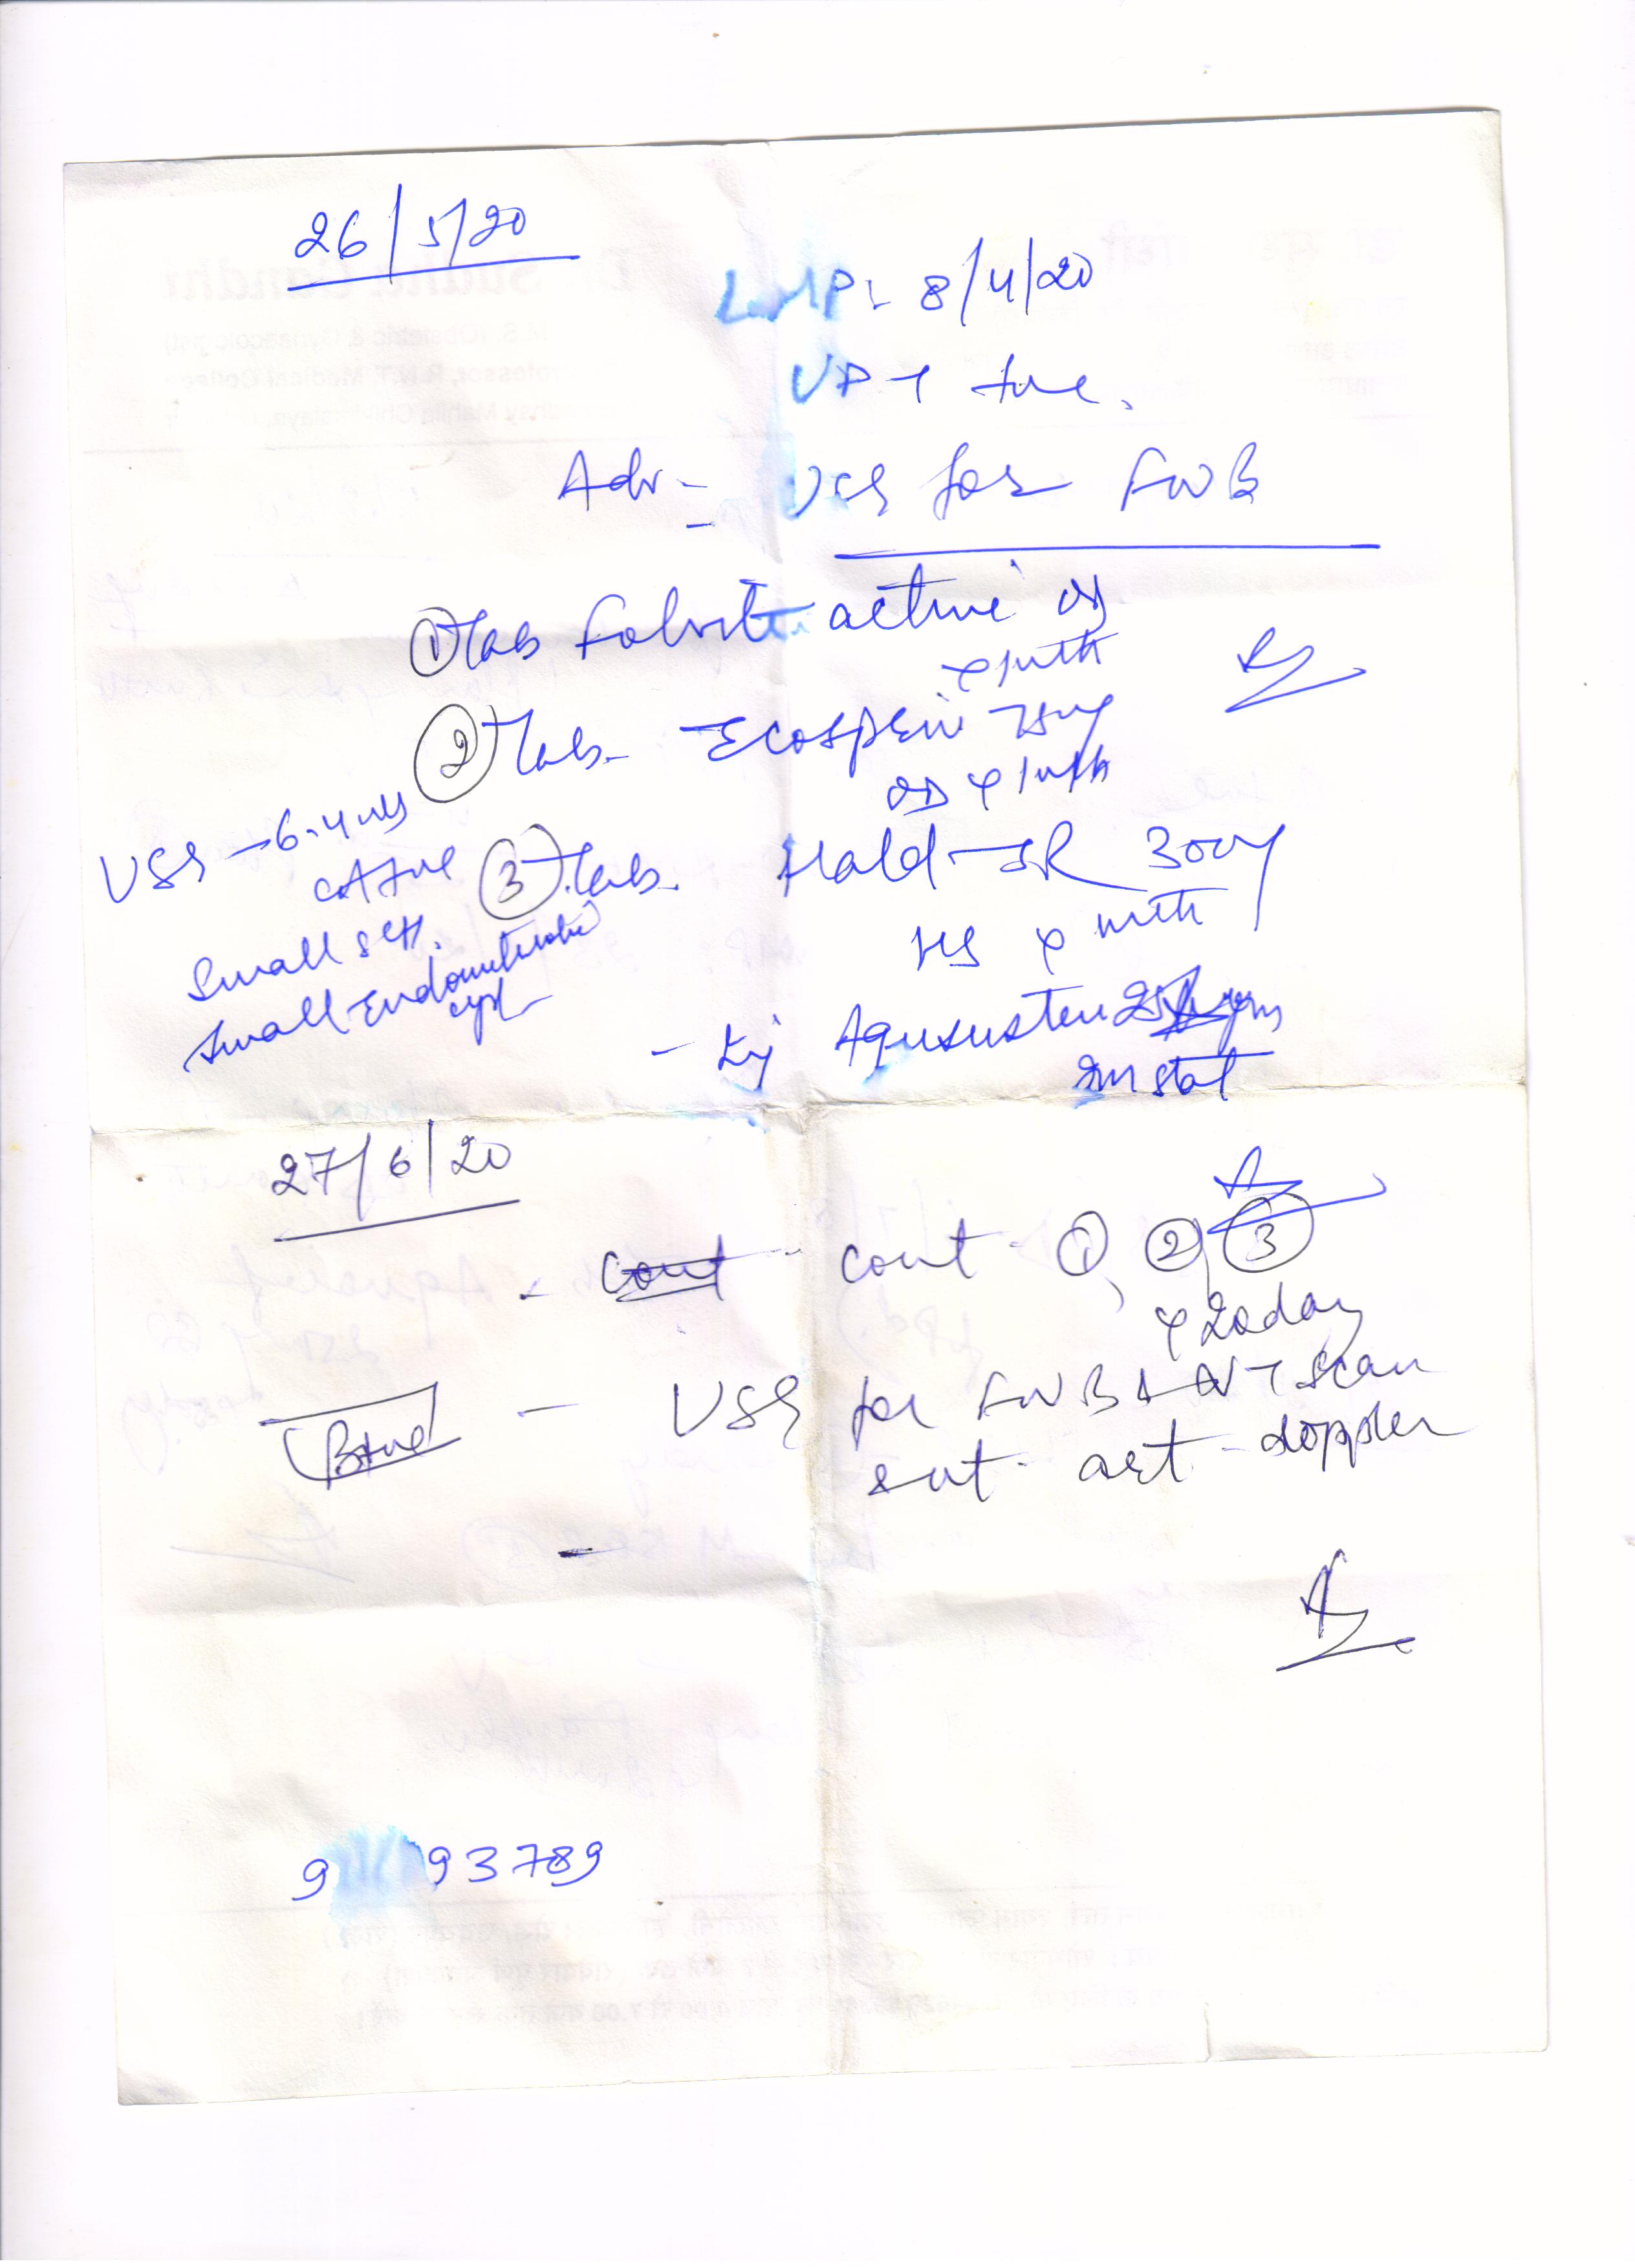 26/5/20
LMP: 8/4/20
UPT +ve.
Adv - USG for FWB
① Tab Folvite active OD
x 1 mth
② Tab. Ecosprin 75mg
OD x 1 mth
USG → 6.4 wks
CA +ve
③ Tab. Hald-SR 300mg
HS x mth
small SCH.
small Endometriotic
cyst
- Inj Aqususten 25mg
IM stat
27/6/20
- cont cont - ①, ②, ③
x 20 day
B +ve
- USG for FWB & NT scan
& ut. art - doppler
9 93789